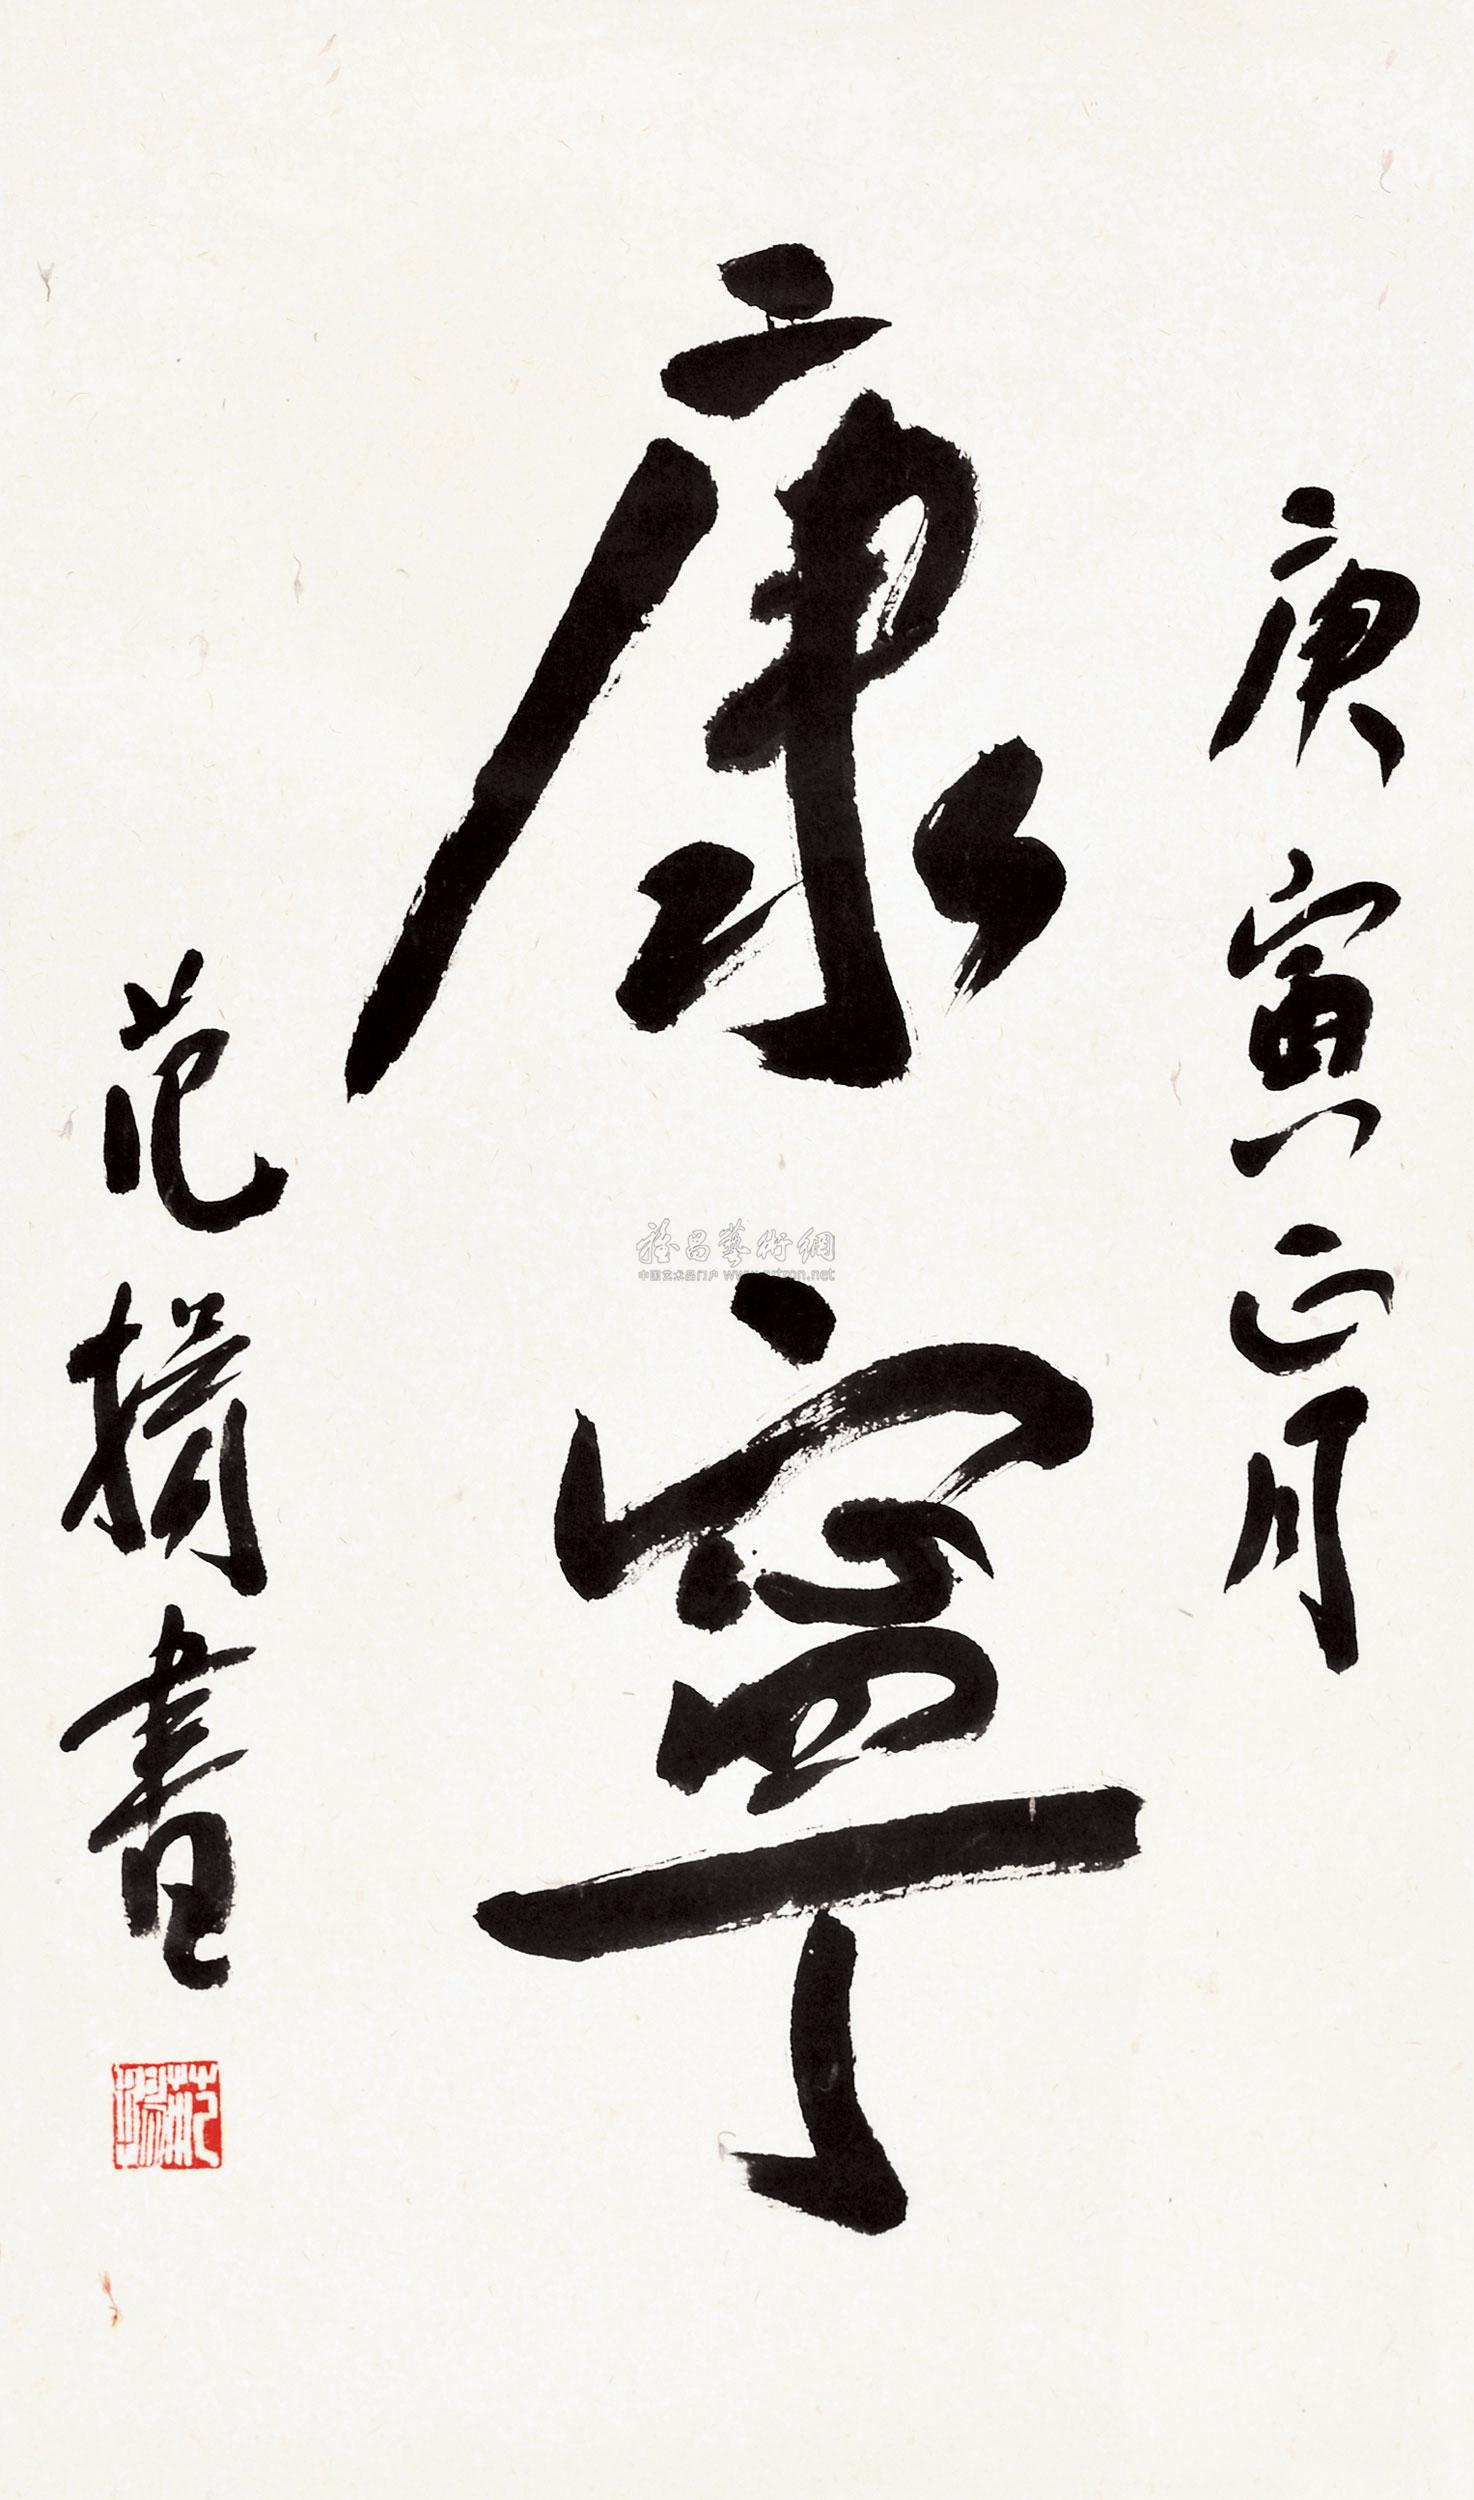 庚寅正月
康寧
范揚書
雅昌藝術網
中国艺术品门户 www.artron.net